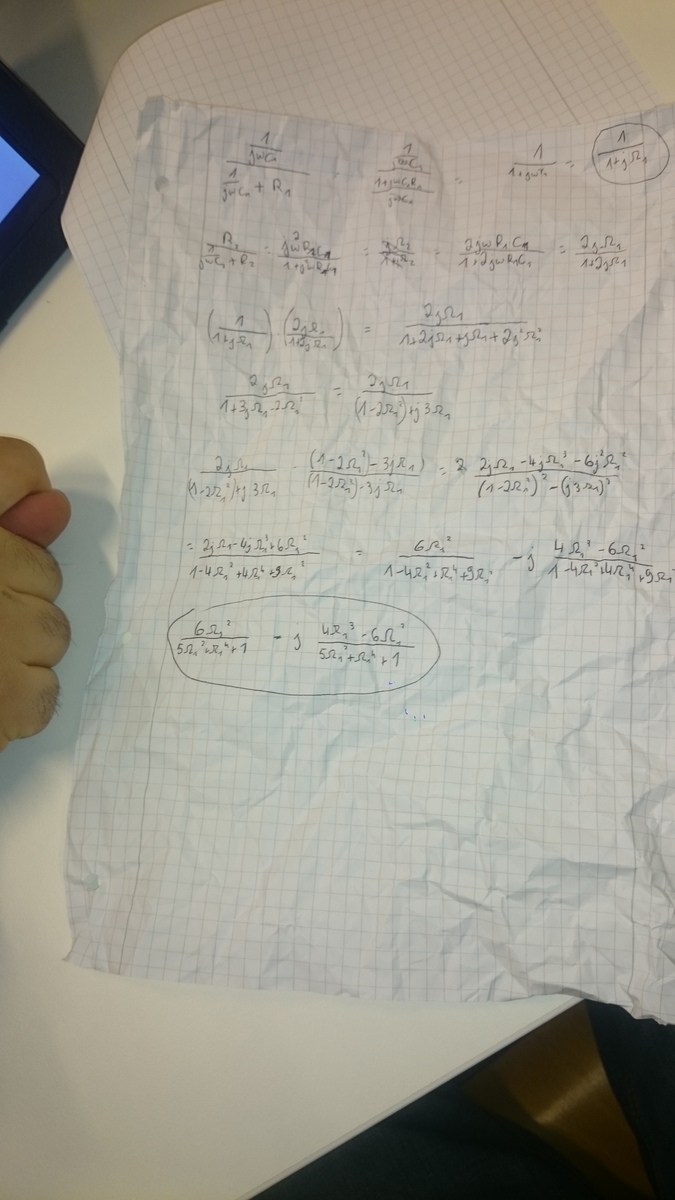 (1/(jωC₁))/(1/(jωC₁) + R₁) (1/(jωC₁))/((1+jωC₁R₁)/(jωC₁)) = 1/(1+jωτ₁) = 1/(1+jΩ₁)
= = 2jωR₁C₁/(1+2jωR₁C₁) = 2jΩ₁/(1+2jΩ₁)
(1/(1+jΩ₁)) · (2jΩ₁/(1+2jΩ₁)) = 2jΩ₁/(1+2jΩ₁+jΩ₁+2j²Ω₁²)
2jΩ₁/(1+3jΩ₁-2Ω₁²) = 2jΩ₁/((1-2Ω₁²)+j3Ω₁)
2jΩ₁/((1-2Ω₁²)+j3Ω₁) · ((1-2Ω₁²)-3jΩ₁)/((1-2Ω₁²)-3jΩ₁) = (2jΩ₁-4jΩ₁³-6j²Ω₁²)/((1-2Ω₁²)²-(j3Ω₁)²)
= (2jΩ₁-4jΩ₁³+6Ω₁²)/(1-4Ω₁²+4Ω₁⁴+9Ω₁²) = 6Ω₁²/(1-4Ω₁²+Ω₁⁴+9Ω₁²) - j (4Ω₁³-6Ω₁²)/(1-4Ω₁²+4Ω₁⁴+9Ω₁²)
6Ω₁²/(5Ω₁²+Ω₁⁴+1) - j (4Ω₁³-6Ω₁²)/(5Ω₁²+Ω₁⁴+1)